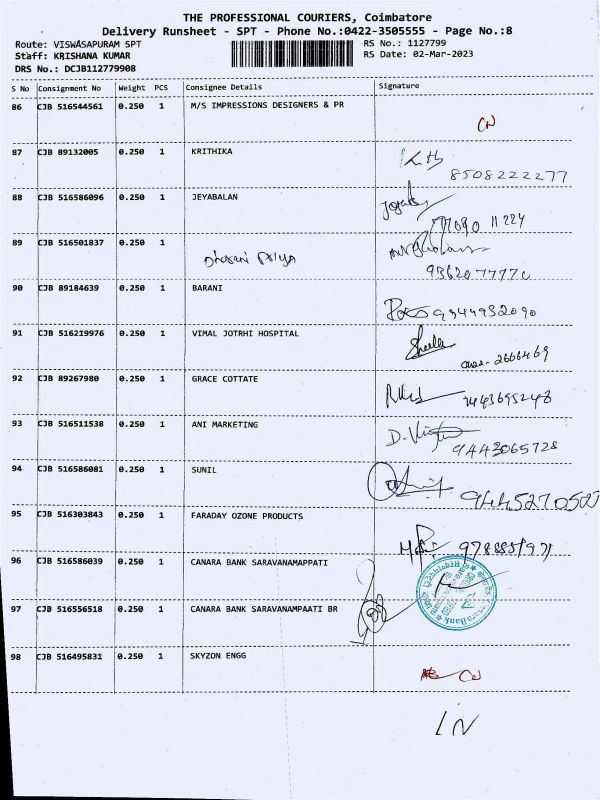 THE PROFESSIONAL COURIERS, Coimbatore
Delivery Runsheet - SPT - Phone No.:0422-3505555 - Page No.:8
Route: VISWASAPURAM SPT RS No.: 1127799
Staff: KRISHANA KUMAR RS Date: 02-Mar-2023
DRS No.: DCJB112779908
S No Consignment No Weight PCS Consignee Details Signature
86 CJB 516544561 0.250 1 M/S IMPRESSIONS DESIGNERS & PR
CN
87 CJB 89132005 0.250 1 KRITHIKA
8508222277
88 CJB 516586096 0.250 1 JEYABALAN
89 CJB 516501837 0.250 1
90 CJB 89184639 0.250 1 BARANI
9344932090
91 CJB 516219976 0.250 1 VIMAL JOTRHI HOSPITAL
Sheela
2666469
92 CJB 89267980 0.250 1 GRACE COTTATE
93 CJB 516511538 0.250 1 ANI MARKETING
9443065728
94 CJB 516586081 0.250 1 SUNIL
95 CJB 516303843 0.250 1 FARADAY OZONE PRODUCTS
96 CJB 516586039 0.250 1 CANARA BANK SARAVANAMAPPATI
97 CJB 516556518 0.250 1 CANARA BANK SARAVANAMPAATI BR
98 CJB 516495831 0.250 1 SKYZON ENGG
IN